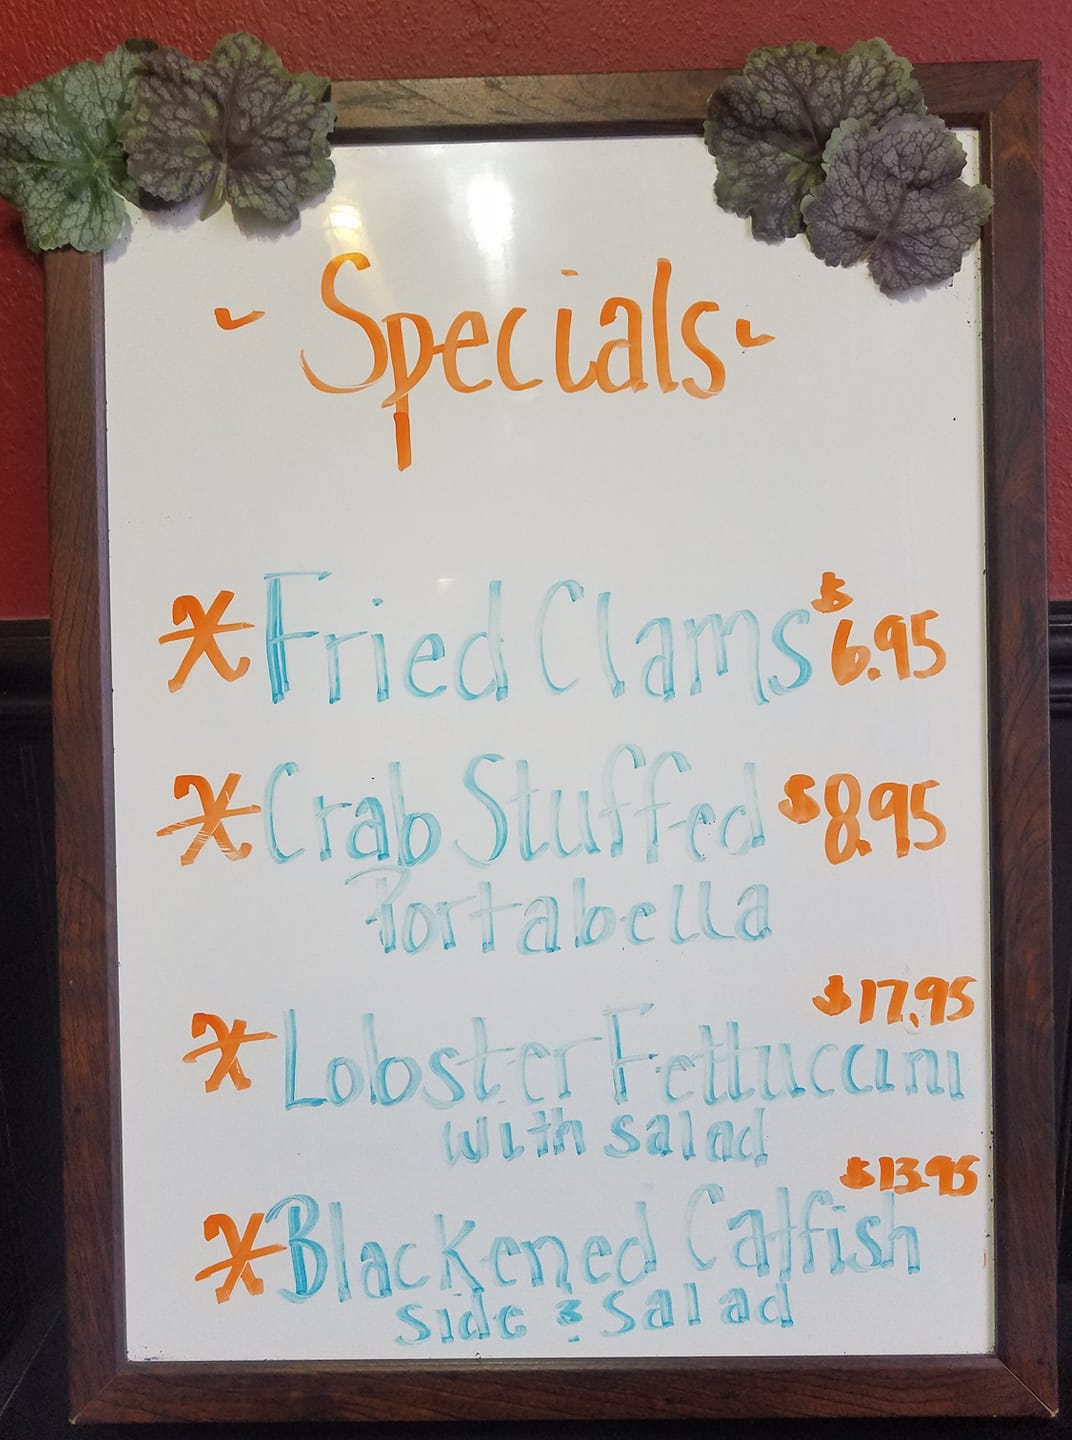 ~ Specials ~
* Fried Clams $6.95
* Crab Stuffed $8.95
Portabella
$17.95
* Lobster Fettuccini
with salad
$13.95
* Blackened Catfish
side & salad